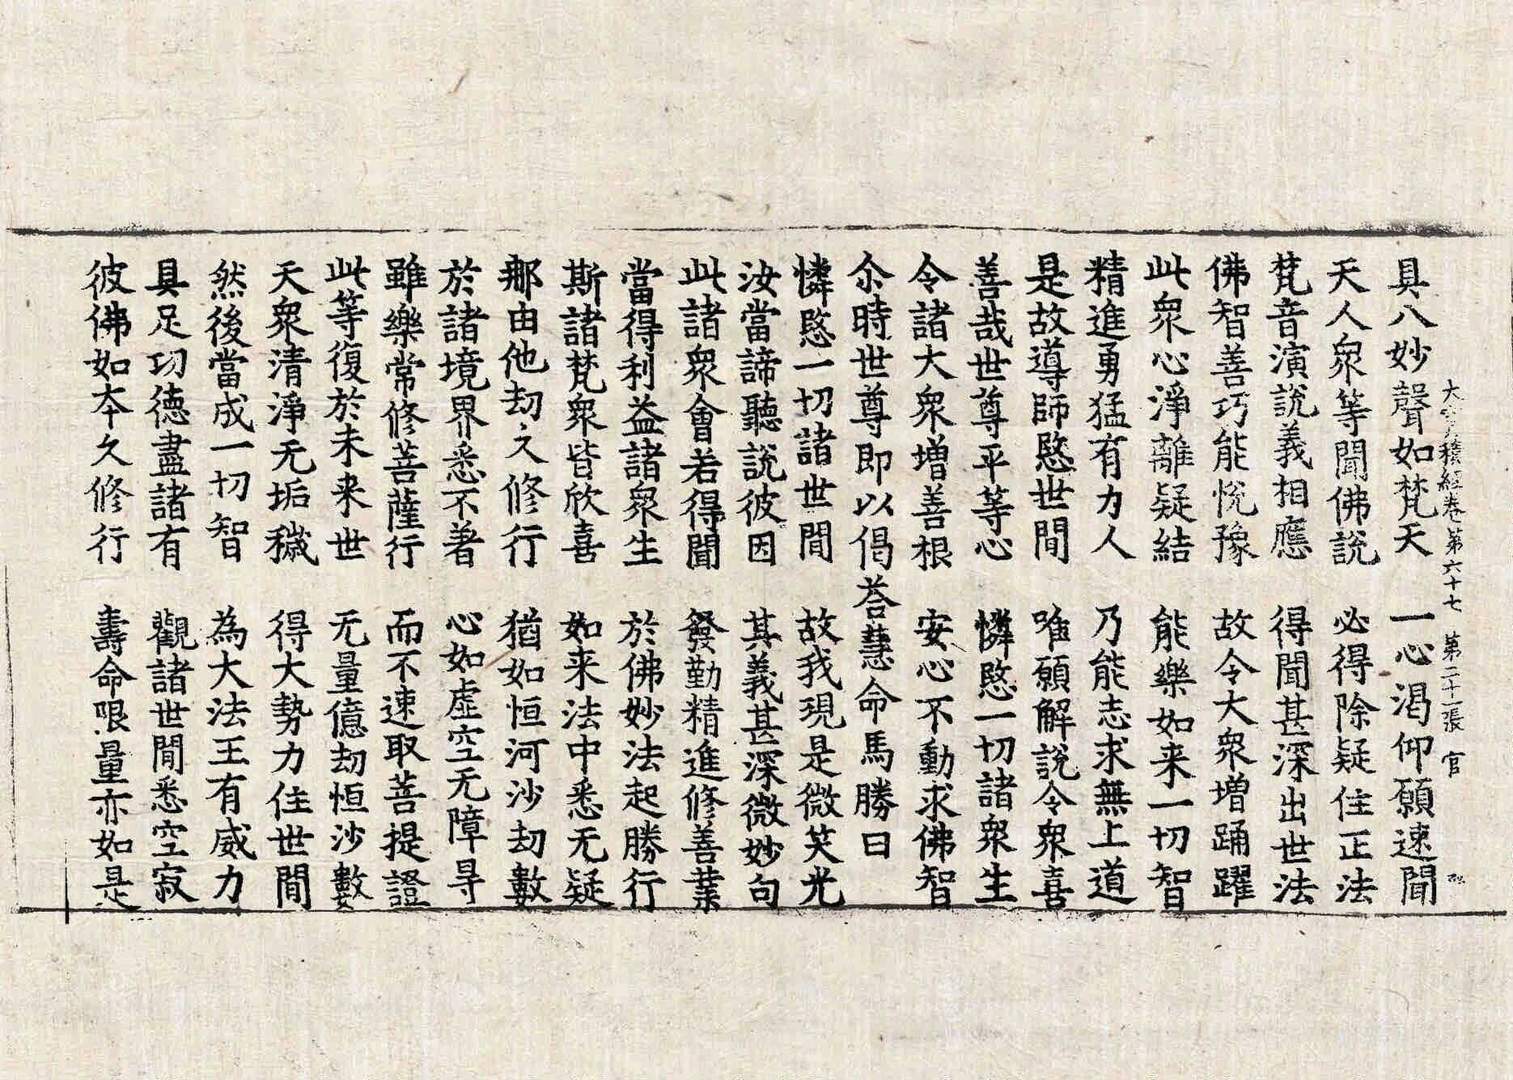 具八妙聲如梵天　一心渴仰願速聞
大寶積經卷第六十七　第二十一張　官
天人衆等聞佛説　必得除疑住正法
梵音演説義相應　得聞甚深出世法
佛智善巧能悅豫　故令大衆增踊躍
此衆心淨離疑結　能樂如来一切智
精進勇猛有力人　乃能志求無上道
是故導師愍世間　唯願解説令衆喜
善哉世尊平等心　憐愍一切諸衆生
令諸大衆增善根　安心不動求佛智
尒時世尊即以偈荅慧命馬勝曰
憐愍一切諸世間　故我現是微笑光
汝當諦聽説彼因　其義甚深微妙句
此諸衆會若得聞　發勤精進修善業
當得利益諸衆生　於佛妙法起勝行
斯諸梵衆皆欣喜　如来法中悉无疑
那由他劫久修行　猶如恒河沙劫數
於諸境界悉不著　心如虛空无障㝵
雖樂常修菩薩行　而不速取菩提證
此等復於未来世　无量億劫恒沙數
天衆清淨无垢穢　得大勢力住世間
然後當成一切智　為大法王有威力
具足功德盡諸有　觀諸世間悉空寂
彼佛如夲久修行　壽命限量亦如是